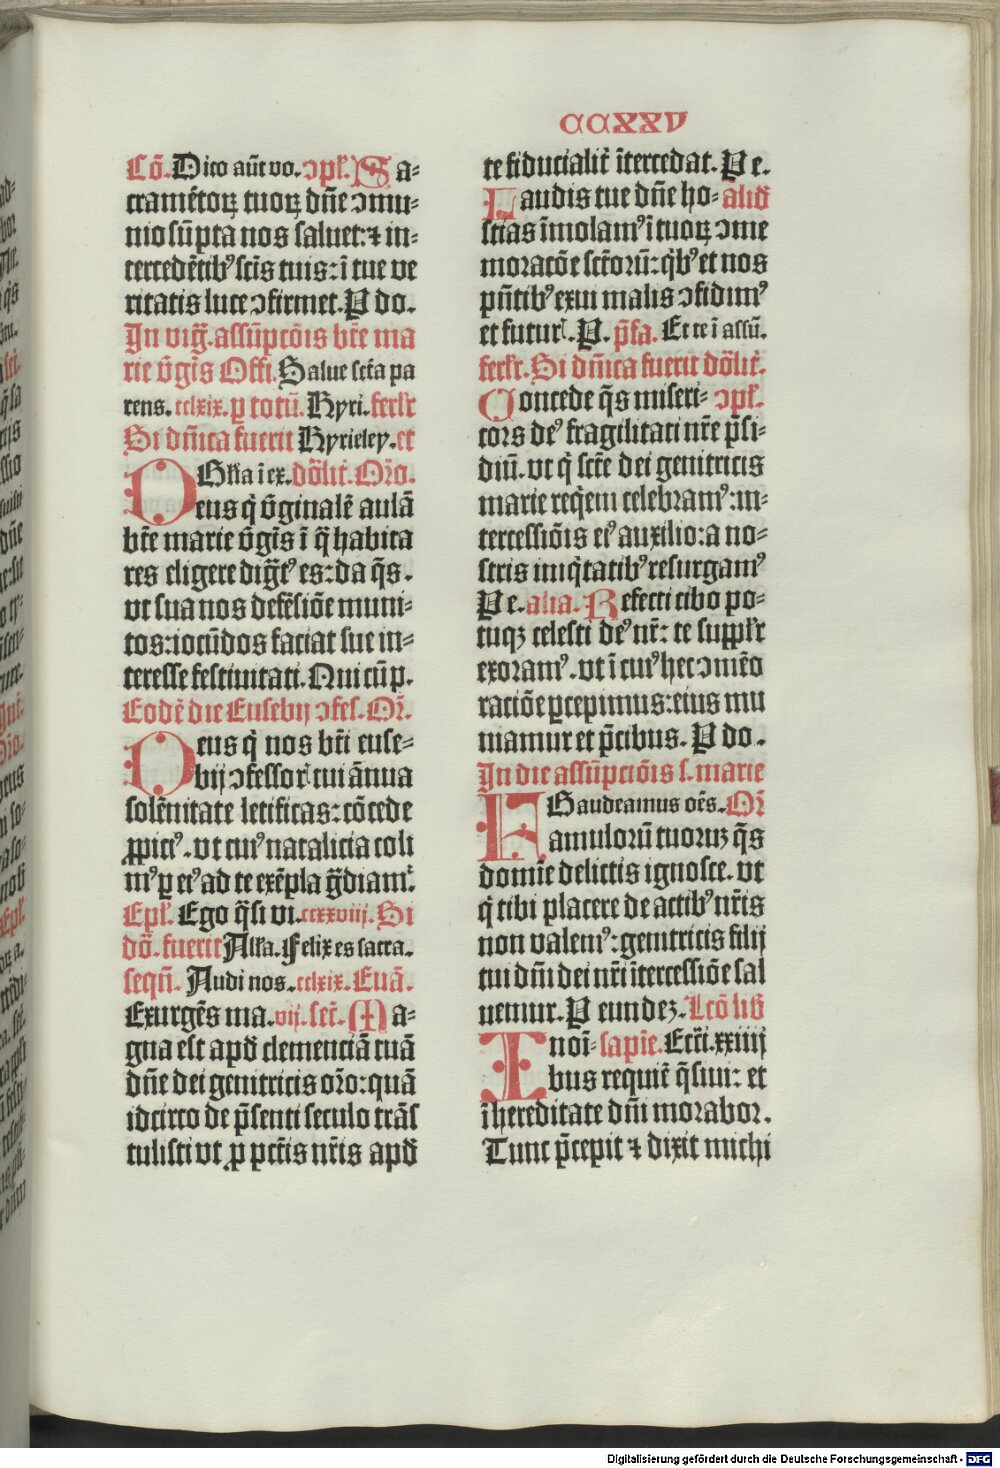 CCXXV
Cō. Dico aūt vo. ɔpł. Sa⸗
cramētoꝝ tuoꝝ dn̄e ɔmu⸗
nio sūpta nos saluet: ⁊ in⸗
tercedētibꝰ sc̄is tuis: ī tue ve
ritatis luce ɔfirmet. P do.
In vig̃. assūpcōis bt̄e ma
rie v̄gīs Offi. Salue sc̄ta pa
rens. cclxix. p totū. Kyri. ferłr
Si dn̄ica fuerit Kyrieley. et
Gl̄ia ī ex. dōlit̄. Or̄o.
Deus q̇ v̄ginalē aulā
bt̄e marie v̄gīs ī q̄ habita
res eligere dig̃tꝰ es: da q̄s.
vt sua nos defēsiōe muni⸗
tos: iocūdos faciat sue in⸗
teresse festiuitati. Qui cū p.
Eodē die Eusebij ɔfes. Or̄.
Deus q̇ nos bt̄i euse⸗
bij ɔfessor̄ cui ānua
solēnitate letificas: cōcede
ꝓpiciꝰ. vt cuiꝰ natalicia coli
mꝰ ꝑ eiꝰ ad te exēpla g̃diamꝰ.
Epł. Ego q̄si vi. ccxxviij. Si
dō. fuerit Alła. Felix es sacra.
seqū. Audi nos. cclxix. Euā.
Exurgēs ma. vij. sec̄. Ma⸗
gna est apd̄ clemenciā tuā
dn̄e dei genitricis or̄o: quā
idcirco de p̄senti seculo trās
tulisti vt ꝓ pctīs nr̄is apd̄
te fiducialit̄ ītercedat. P e.
Laudis tue dn̄e ho⸗ alid̄
stias īmolamꝰ ī tuoꝝ ɔme
moracōe sctōrū: q̇bꝰ et nos
pn̄tibꝰ exui malis ɔfidimꝰ
et futur̄. P. p̄fa. Et te ī assū.
ferłr. Si dn̄ica fuerit dōlit̄.
Concede q̄s miseri⸗ ɔpł.
cors deꝰ fragilitati nr̄e p̄si⸗
diū. vt q̇ sct̄e dei genitricis
marie req̄em celebramꝰ: in⸗
tercessiōis eiꝰ auxilio: a no⸗
stris iniq̇tatibꝰ resurgamꝰ
P e. alia. Refecti cibo po⸗
tuqꝫ celesti deꝰ nr̄: te suppłr
exoramꝰ. vt ī cuiꝰ hec ɔmēo
ratiōe ꝑcepimus: eius mu
niamur et p̄cibus. P do.
In die assūpciōis s. marie
Gaudeamus oēs. Or̄
Famulorū tuoruꝫ q̄s
domīe delictis ignosce. vt
q̇ tibi placere de actibꝰ nr̄is
non valemꝰ: genitricis filij
tui dn̄i dei nr̄i ītercessiōe sal
uemur. P eundeꝫ. Lcō lib̄
In oī⸗ sapie. Ecc̄i. xxiiij
bus requiē q̄siui: et
ī hereditate dn̄i morabor.
Tunc p̄cepit ⁊ dixit michi
Digitalisierung gefördert durch die Deutsche Forschungsgemeinschaft - DFG